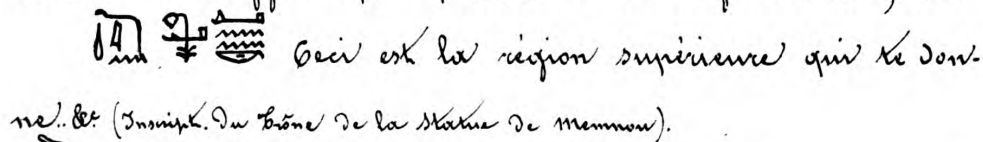 Ceci est la région supérieure qui te don-
ne.. &c (Inscript. du Trône de la Statue de Memnon).